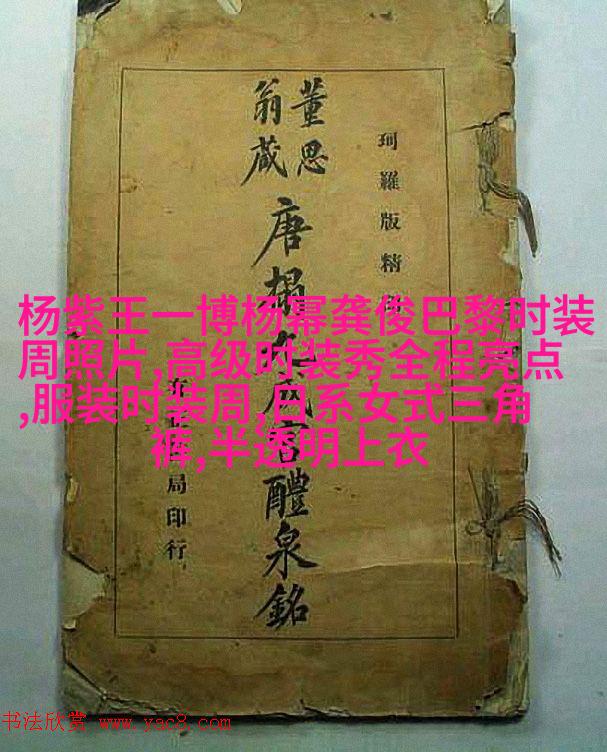 珂羅版精
董思
翁藏
唐搨九成宮醴泉銘
局印行
杨紫王一博杨幂龚俊巴黎时装
周照片,高级时装秀全程亮点
,服装时装周,日系女式三角
裤,半透明上衣
书法欣赏 www.yac8.com